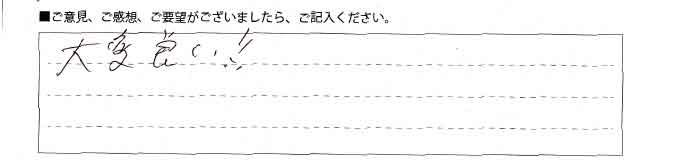 ■ご意見、ご感想、ご要望がございましたら、ご記入ください。
大変良い!!